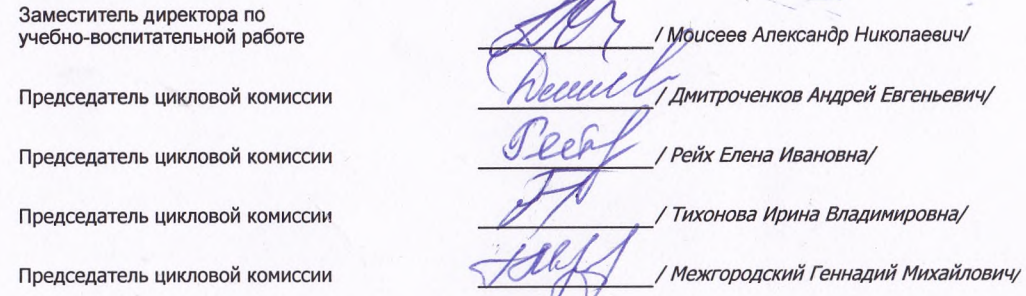 Заместитель директора по
учебно-воспитательной работе / Моисеев Александр Николаевич/
Председатель цикловой комиссии / Дмитроченков Андрей Евгеньевич/
Председатель цикловой комиссии / Рейх Елена Ивановна/
Председатель цикловой комиссии / Тихонова Ирина Владимировна/
Председатель цикловой комиссии / Межгородский Геннадий Михайлович/